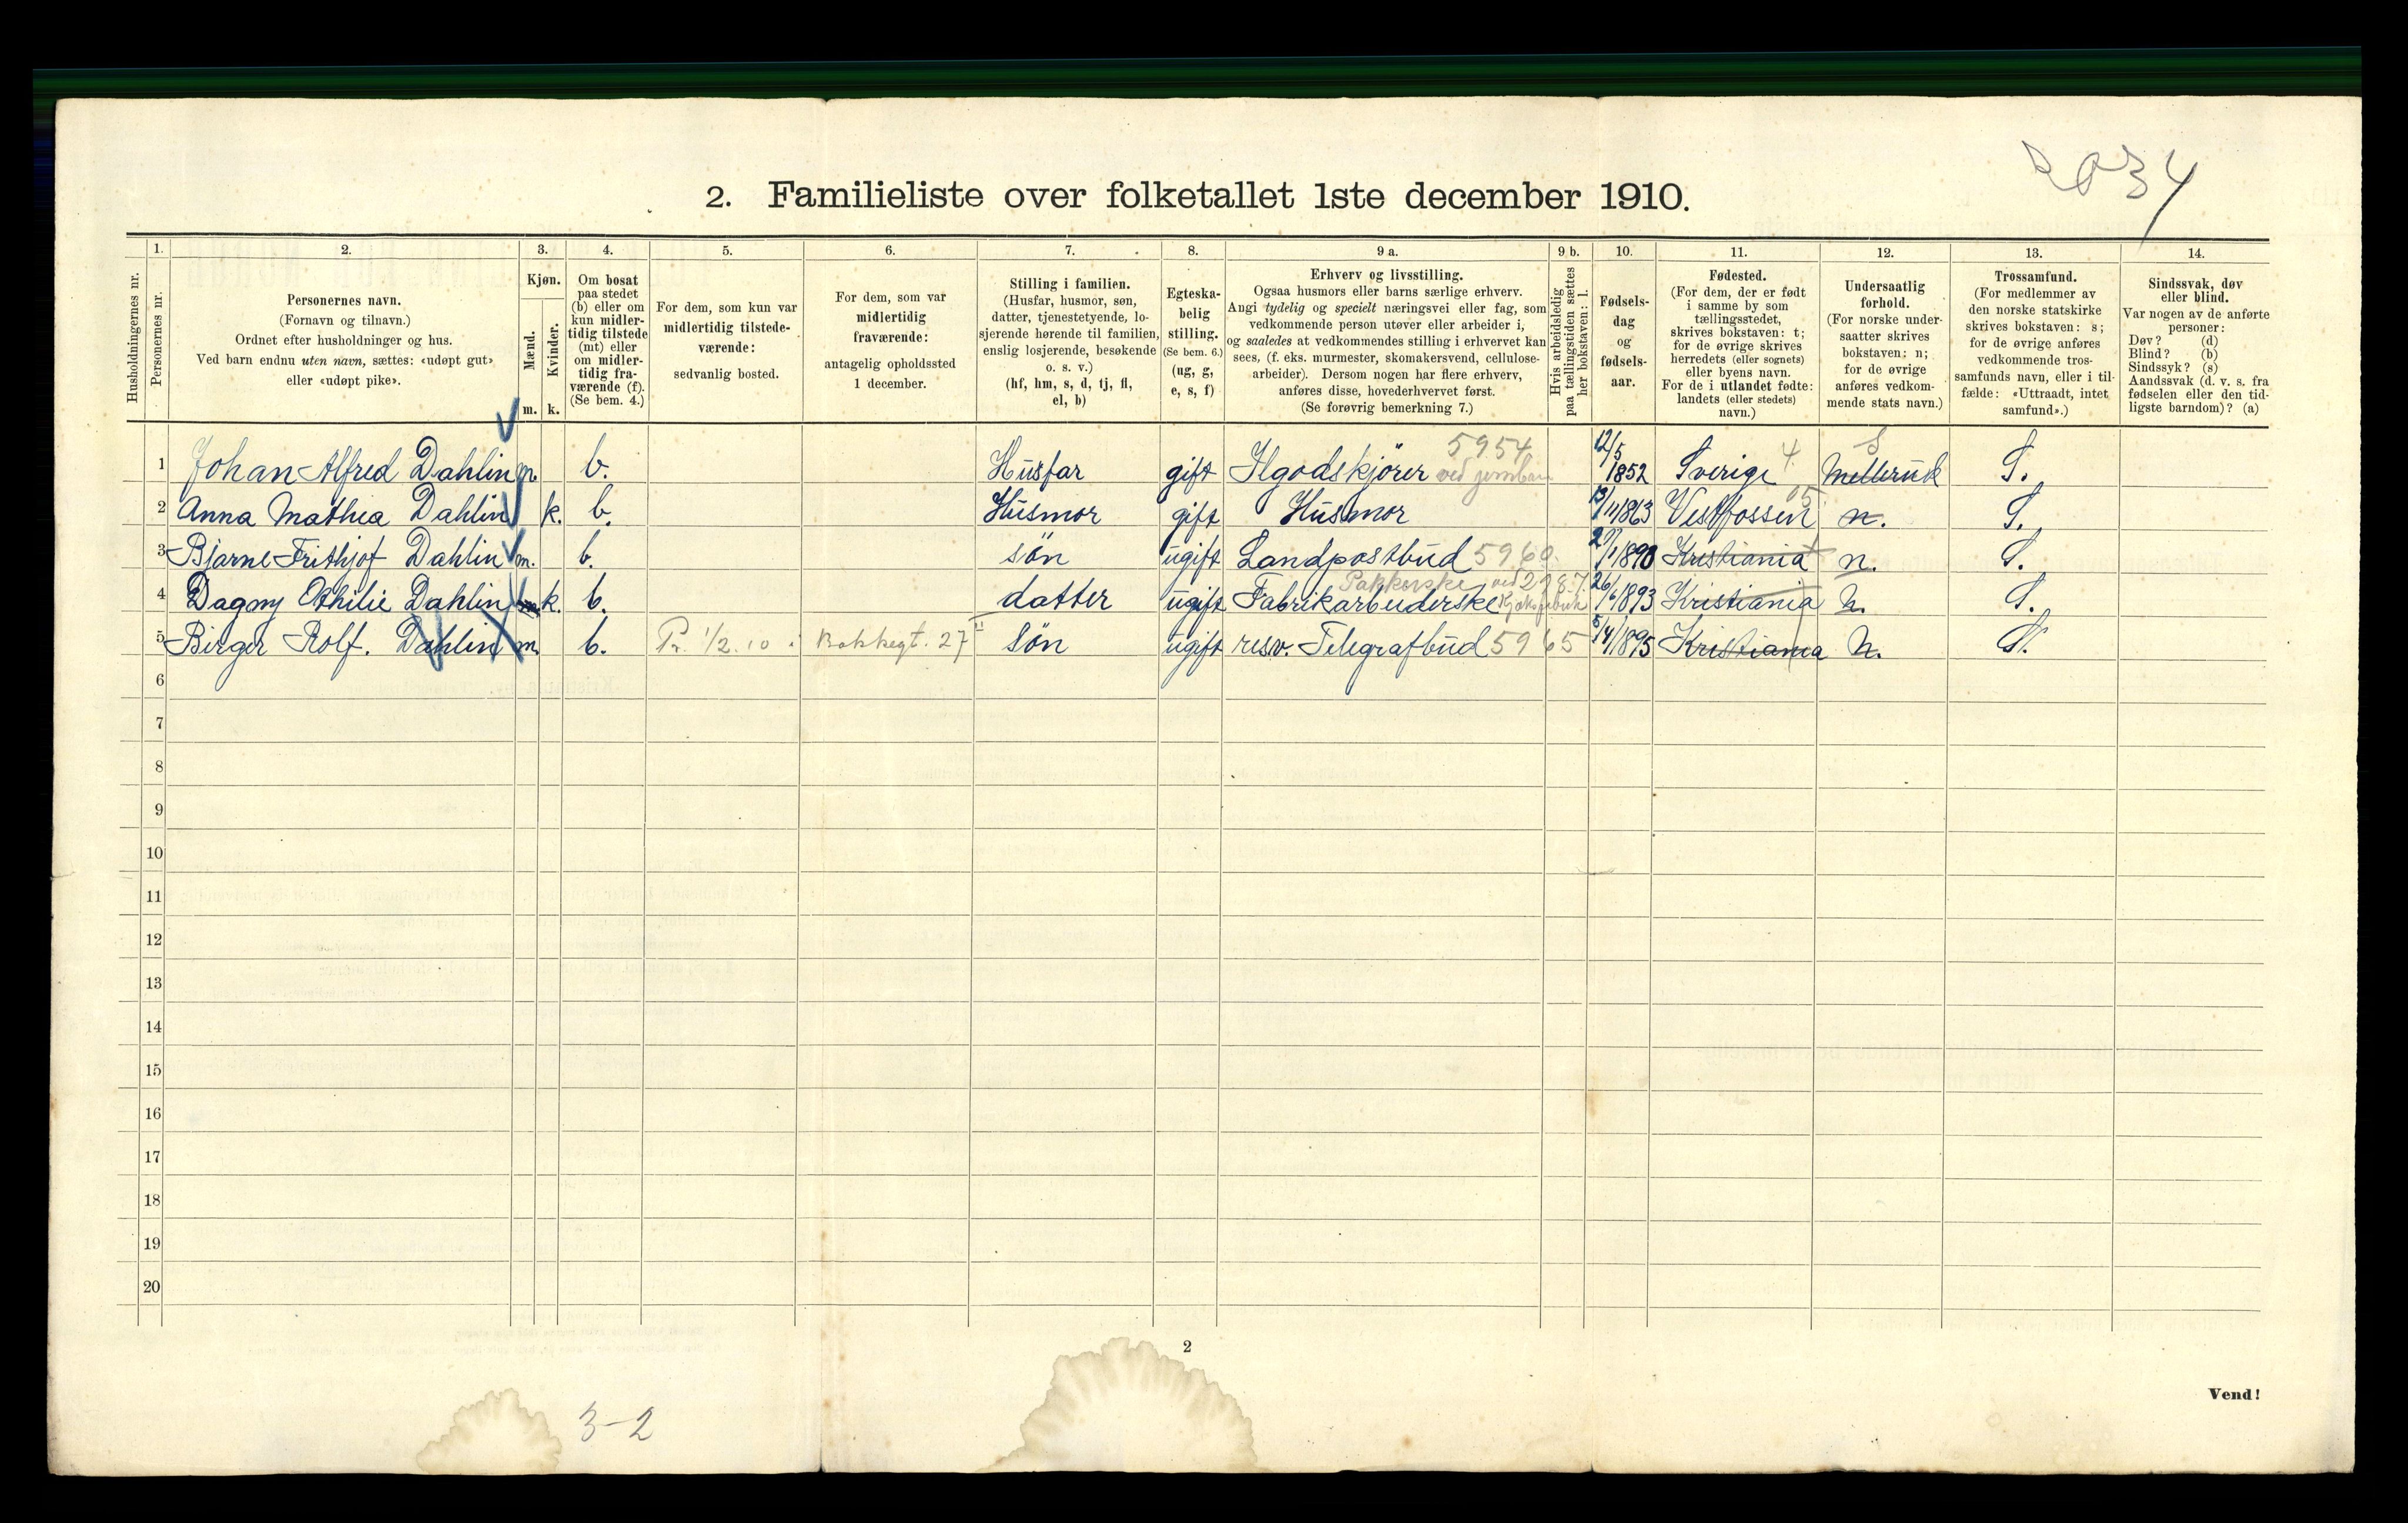 2034
2. Familieliste over folketallet 1ste december 1910.
Husholdningernes nr.
1.
Personernes nr.
2.
Personernes navn.
(Fornavn og tilnavn.)
Ordnet efter husholdninger og hus.
Ved barn endnu uten navn, sættes: «udøpt gut»
eller «udøpt pike».
3.
Kjøn.
Mænd.
Kvinder.
m. k.
4.
Om bosat
paa stedet
(b) eller om
kun midler-
tidig tilstede
(mt) eller
om midler-
tidig fra-
værende (f).
(Se bem. 4.)
5.
For dem, som kun var
midlertidig tilstede-
værende:
sedvanlig bosted.
6.
For dem, som var
midlertidig
fraværende:
antagelig opholdssted
1 december.
7.
Stilling i familien.
(Husfar, husmor, søn,
datter, tjenestetyende, lo-
sjerende hørende til familien,
enslig losjerende, besøkende
o. s. v.)
(hf, hm, s, d, tj, fl,
el, b)
8.
Egteska-
belig
stilling.
(Se bem. 6.)
(ug, g,
e, s, f)
9 a.
Erhverv og livsstilling.
Ogsaa husmors eller barns særlige erhverv.
Angi tydelig og specielt næringsvei eller fag, som
vedkommende person utøver eller arbeider i,
og saaledes at vedkommendes stilling i erhvervet kan
sees, (f. eks. murmester, skomakersvend, cellulose-
arbeider). Dersom nogen har flere erhverv,
anføres disse, hovederhvervet først.
(Se forøvrig bemerkning 7.)
9 b.
Hvis arbeidsledig
paa tællingstiden sættes
her bokstaven: l.
10.
Fødsels-
dag
og
fødsels-
aar.
11.
Fødested.
(For dem, der er født
i samme by som
tællingsstedet,
skrives bokstaven: t;
for de øvrige skrives
herredets (eller sognets)
eller byens navn.
For de i utlandet fødte:
landets (eller stedets)
navn.)
12.
Undersaatlig
forhold.
(For norske under-
saatter skrives
bokstaven: n;
for de øvrige
anføres vedkom-
mende stats navn.)
13.
Trossamfund.
(For medlemmer av
den norske statskirke
skrives bokstaven: s;
for de øvrige anføres
vedkommende tros-
samfunds navn, eller i til-
fælde: «Uttraadt, intet
samfund».)
14.
Sindssvak, døv
eller blind.
Var nogen av de anførte
personer:
Døv? (d)
Blind? (b)
Sindssyk? (s)
Aandssvak (d. v. s. fra
fødselen eller den tid-
ligste barndom)? (a)
1 Johan Alfred Dahlin m. b. Husfar gift Ilgodskjörer ved jernban 5954 12/5 1852 Sverige 4 Mellerud S S.
2 Anna Mathea Dahlin k. b. Husmor gift Husmor 13/11 1863 Vestfossen 05 n. S.
3 Bjarne Frithjof Dahlin m. b. sön ugift Landpostbud 5960. 27/1 1890 Kristiania t n. S.
4 Dagny Othilie Dahlin k. b. datter ugift Fabrikarbeiderske Pakkerske ved 26/6 1893 Kristiania n. S.
5 Birger Rolf. Dahlin m. b. Pr. 1/2.10. Bakkegt. 27 II sön ugift resv. Telegrafbud 5965 5/4 1895 Kristiania n. S.
6
7
8
9
10
11
12
13
14
15
16
17
18
19
20
2
Vend!
3-2